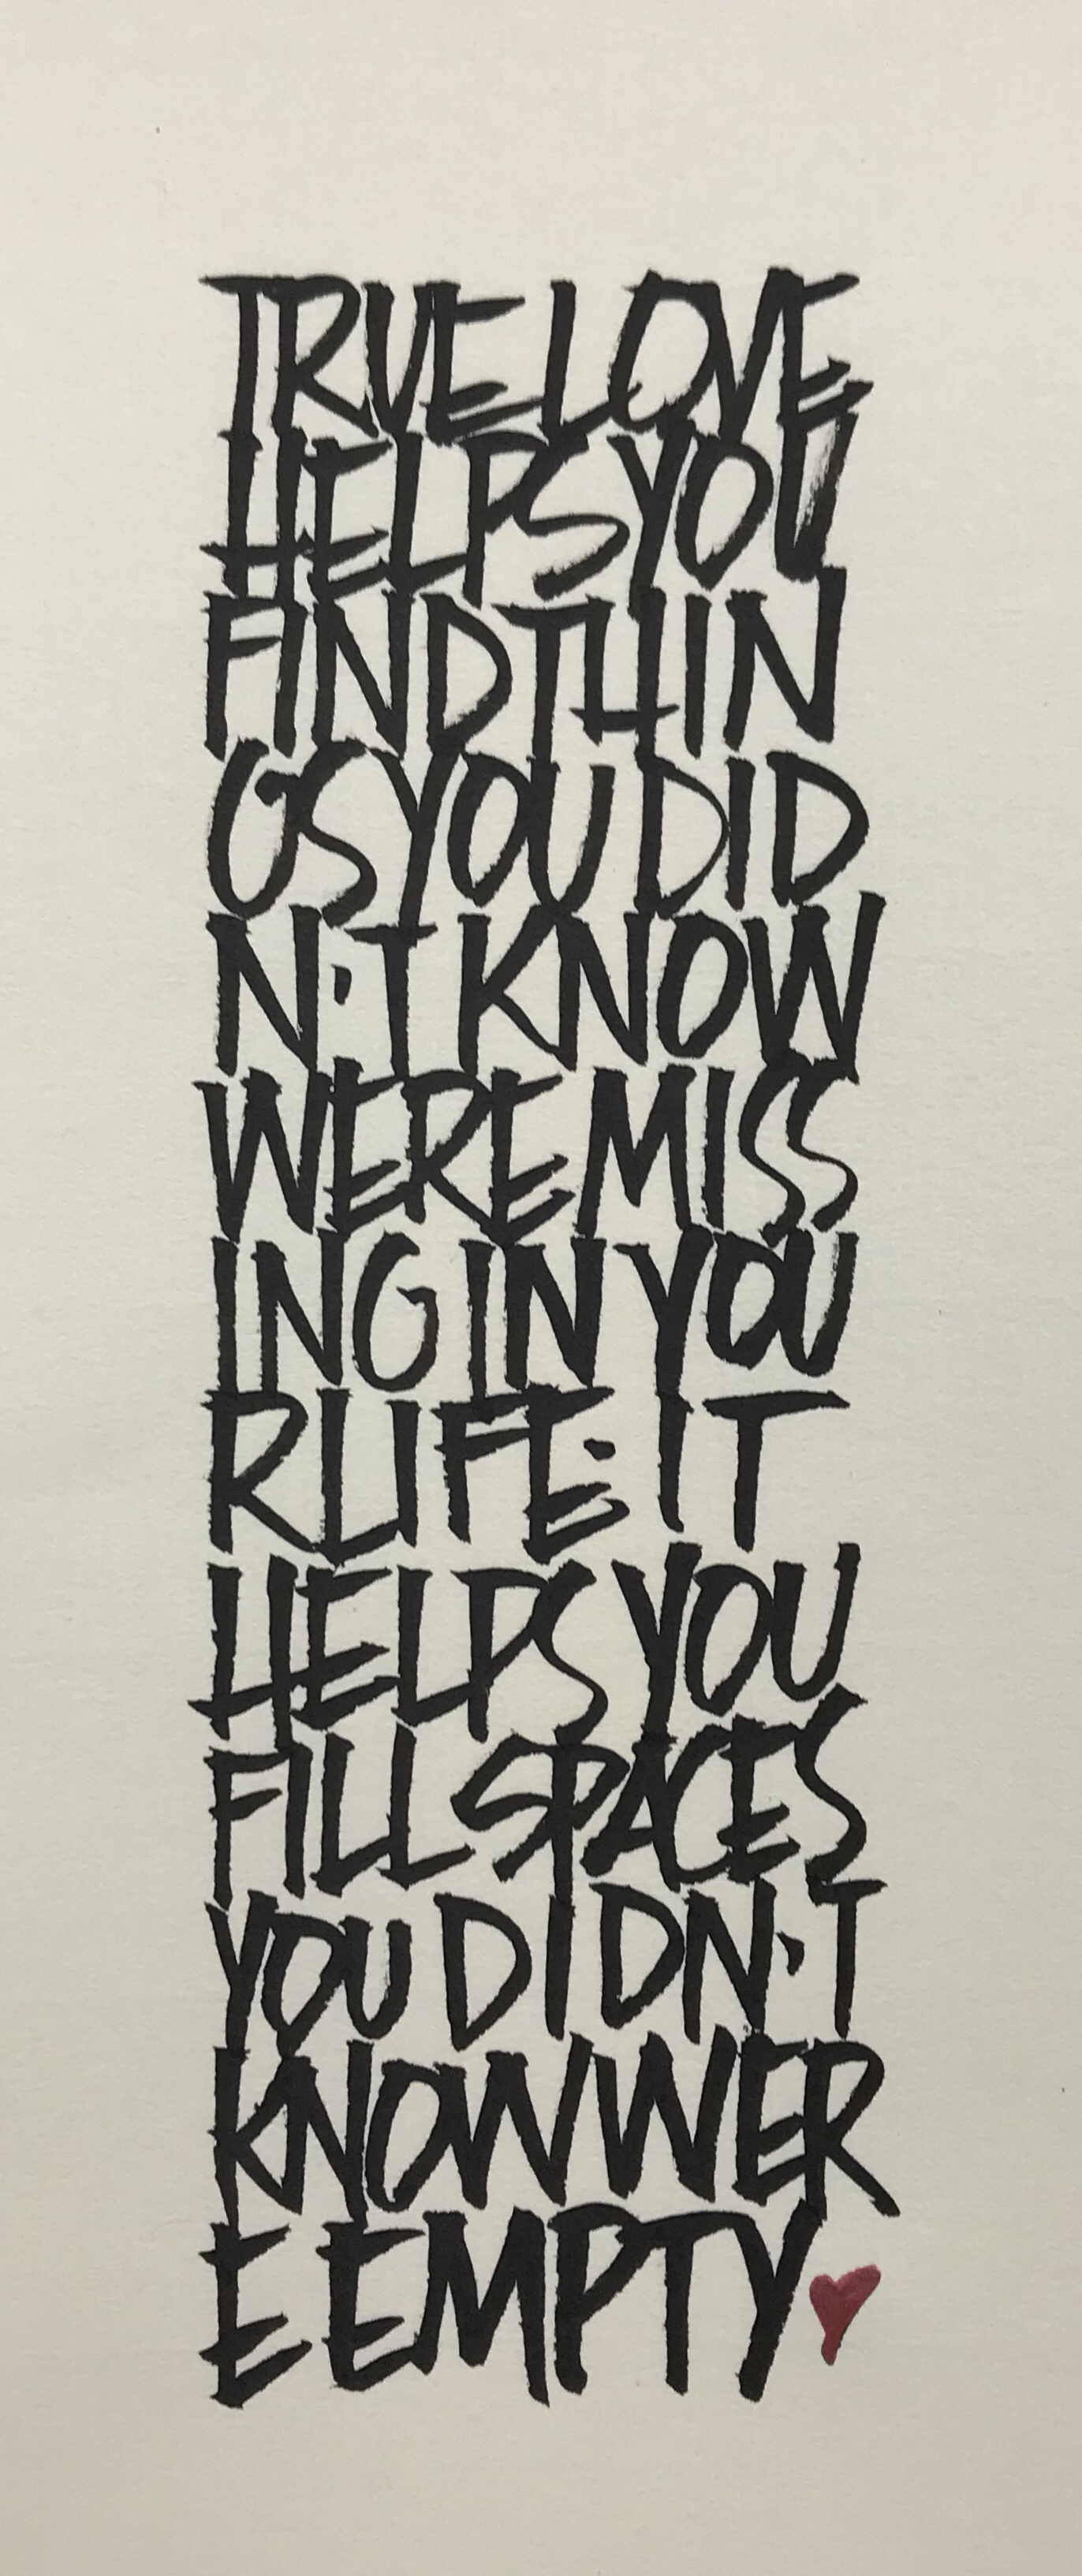 TRUE LOVE
HELPS YOU
FIND THIN
GS YOU DID
N'T KNOW
WERE MISS
ING IN YOU
R LIFE. IT
HELPS YOU
FILL SPACES
YOU DIDN'T
KNOW WER
E EMPTY